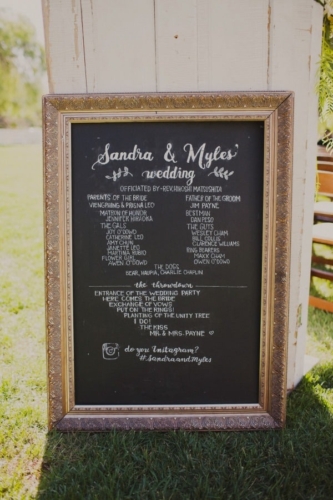 Sandra & Myles'
wedding
OFFICIATED BY REV. KIYOSHI MATSUSHITA
PARENTS OF THE BRIDE
MATRON OF HONOR
JENNIFER
THE GALS
JOY O'DOWD
CATHERINE LEO
AMY CHUN
JANETTE LEO
MARTINA RUBIO
FLOWER GIRL
AWEN O'DOWD
FATHER OF THE GROOM
JIM PAYNE
BESTMAN
DAN PESO
THE GUYS
WESLEY CHAM
BILL
CLARENCE WILLIAMS
RING BEARERS
MAXX CHAM
OWEN O'DOWD
THE DOGS
BEAR, NAUMA, CHARLIE CHAPLIN
the throwdown
ENTRANCE OF THE WEDDING PARTY
HERE COMES THE BRIDE
EXCHANGE OF VOWS
PUT ON THE RINGS!
PLANTING OF THE UNITY TREE
I DO!
THE KISS
MR. & MRS. PAYNE ♡
do you Instagram?
#SandraandMyles